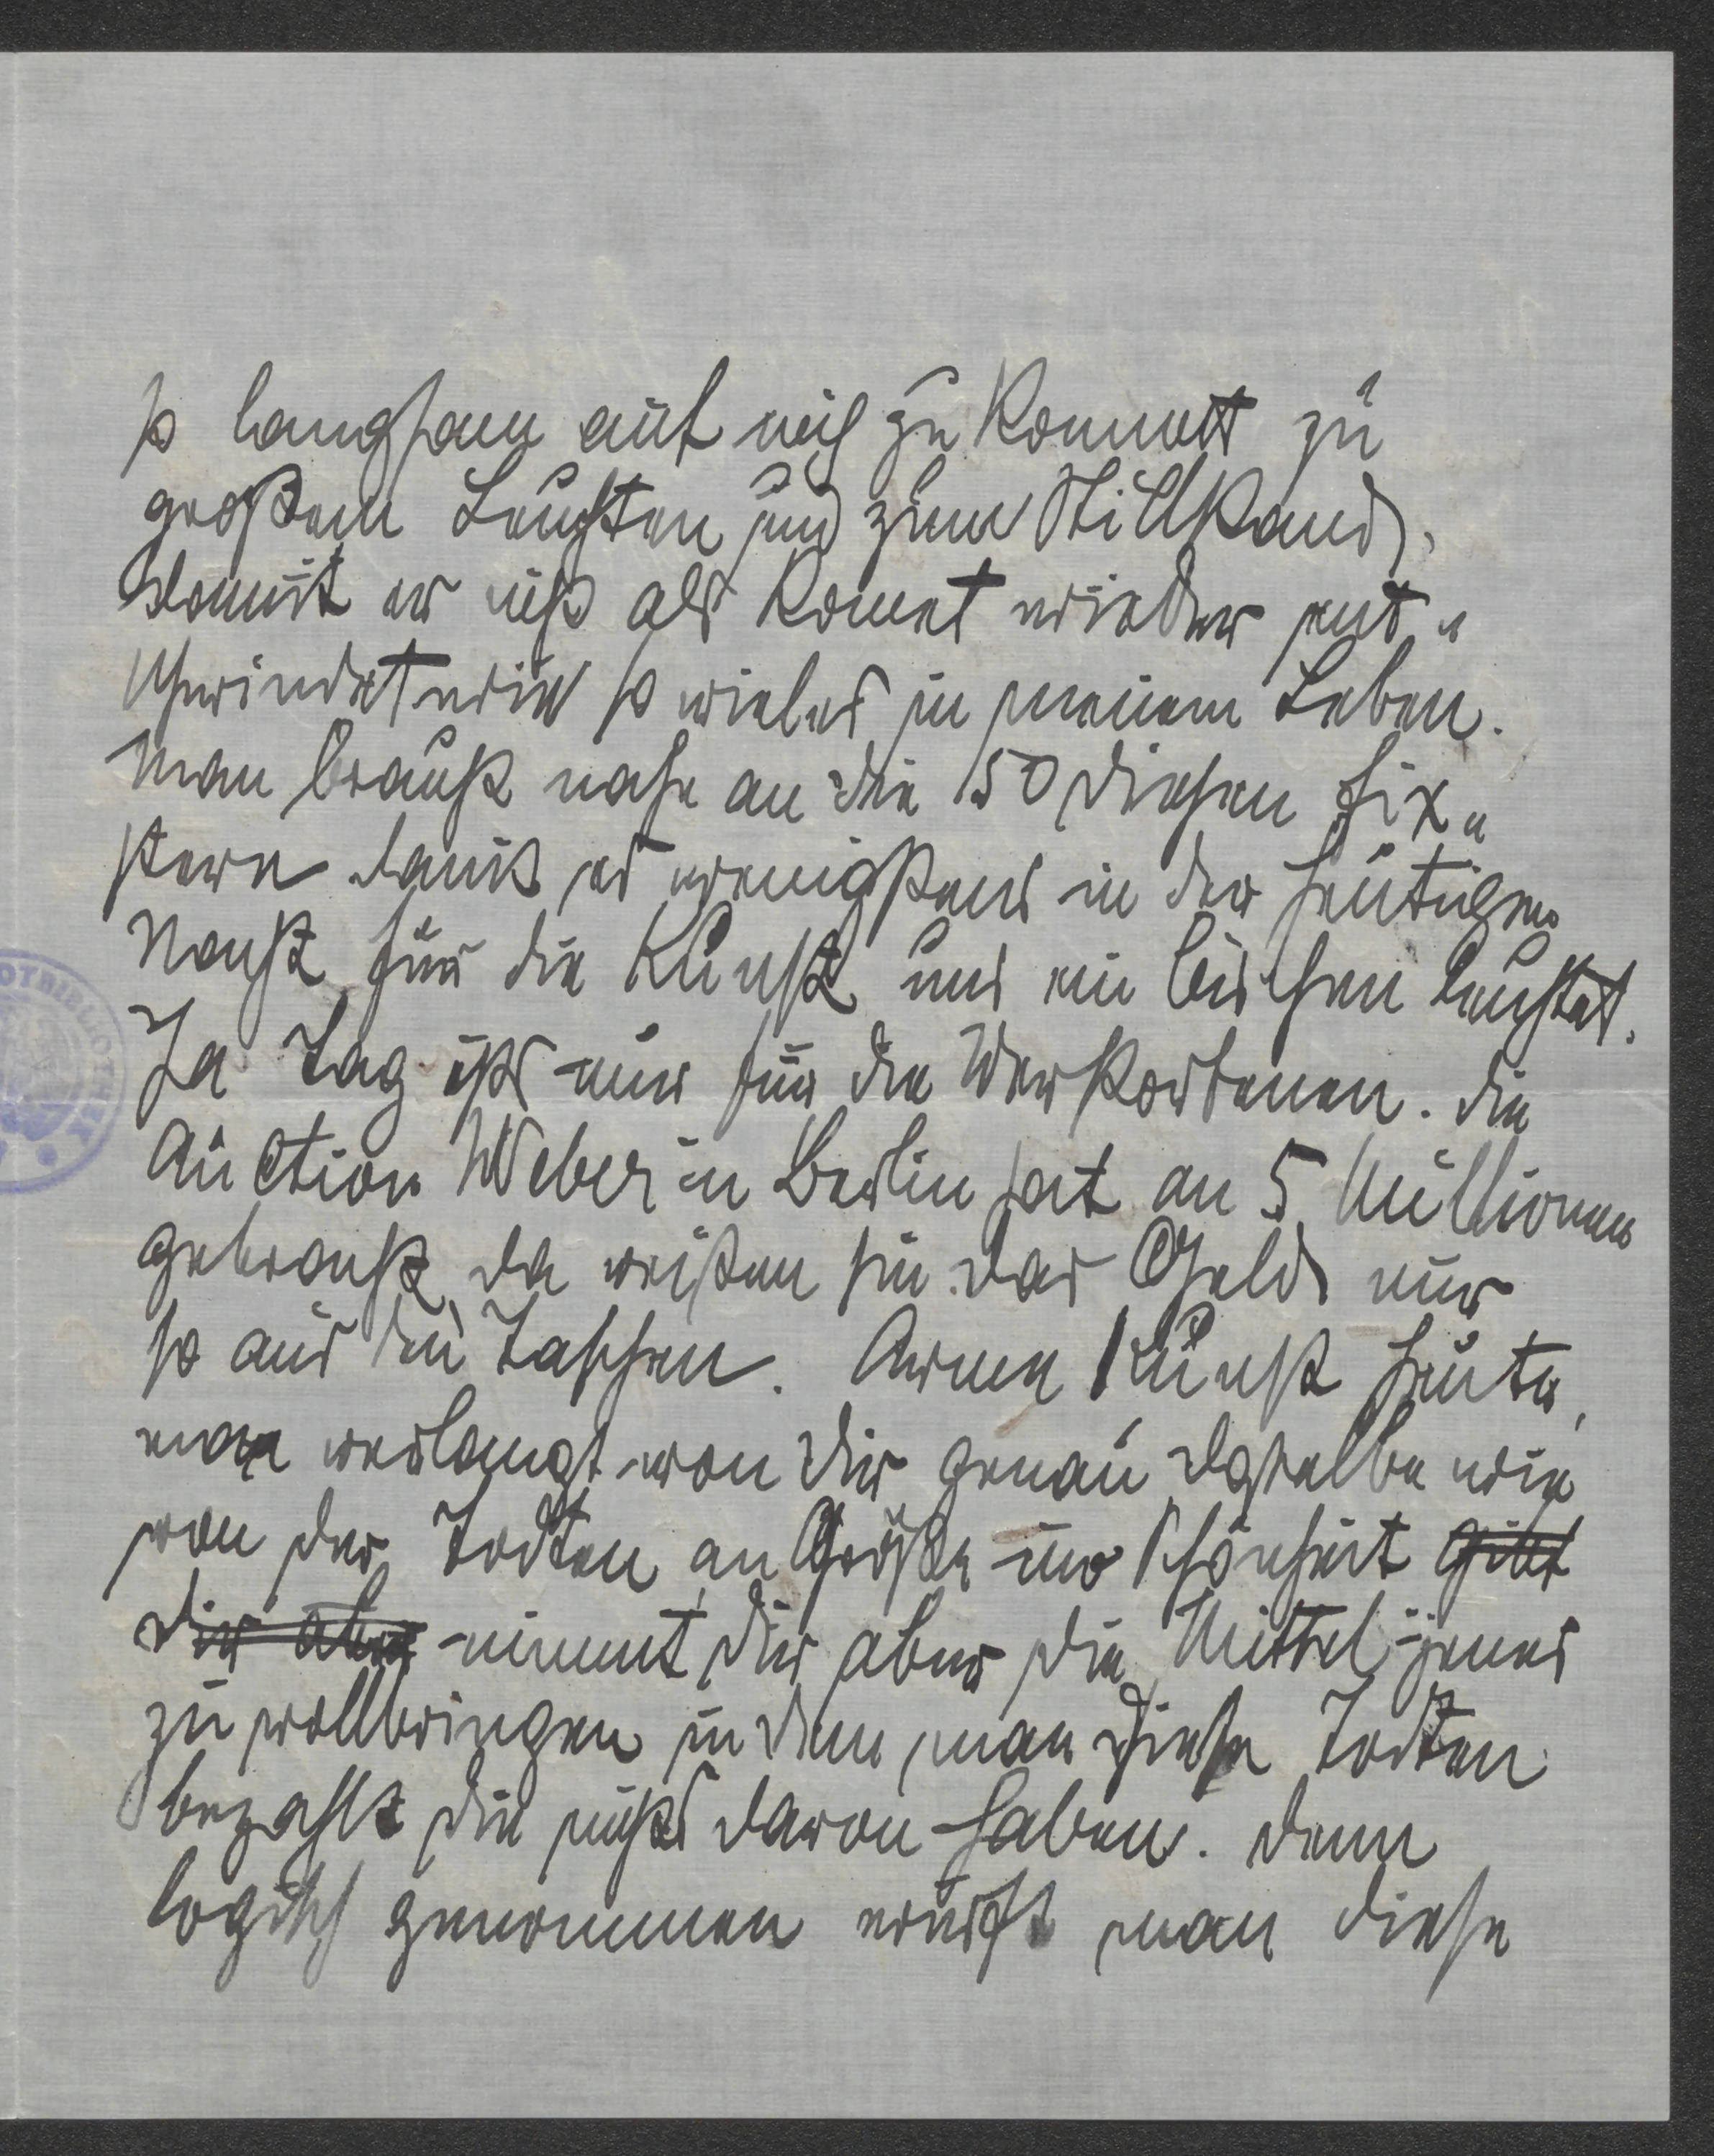 so langsam auf mich zu kommt zu
großem Leuchten und zum Stillstand,
damit er nicht als Komet wieder ent„
schwindet wie so vieles in meinem Leben.
Man braucht nahe an die 50 diesen Fix„
stern damit es wenigstens in der heutigen
Nacht für die Kunst uns ein bischen leuchtet.
Ja Tag ists nur für die Verstorbenen. die
Auction Weber in Berlin hat an 5 Millionen
gebracht, da reißen sie das Geld nur
so aus den Taschen. Arme Kunst heute,
man verlangt von dir genau dasselbe wie
von den Todten an Größe und Schönheit gibt
dir aber nimmt dir aber die Mittel jenes
zu vollbringen in dem man diese Todten
bezahlt die nichts davon haben. denn
logisch genommen wirft man diese
OTBIBLIOTHEK